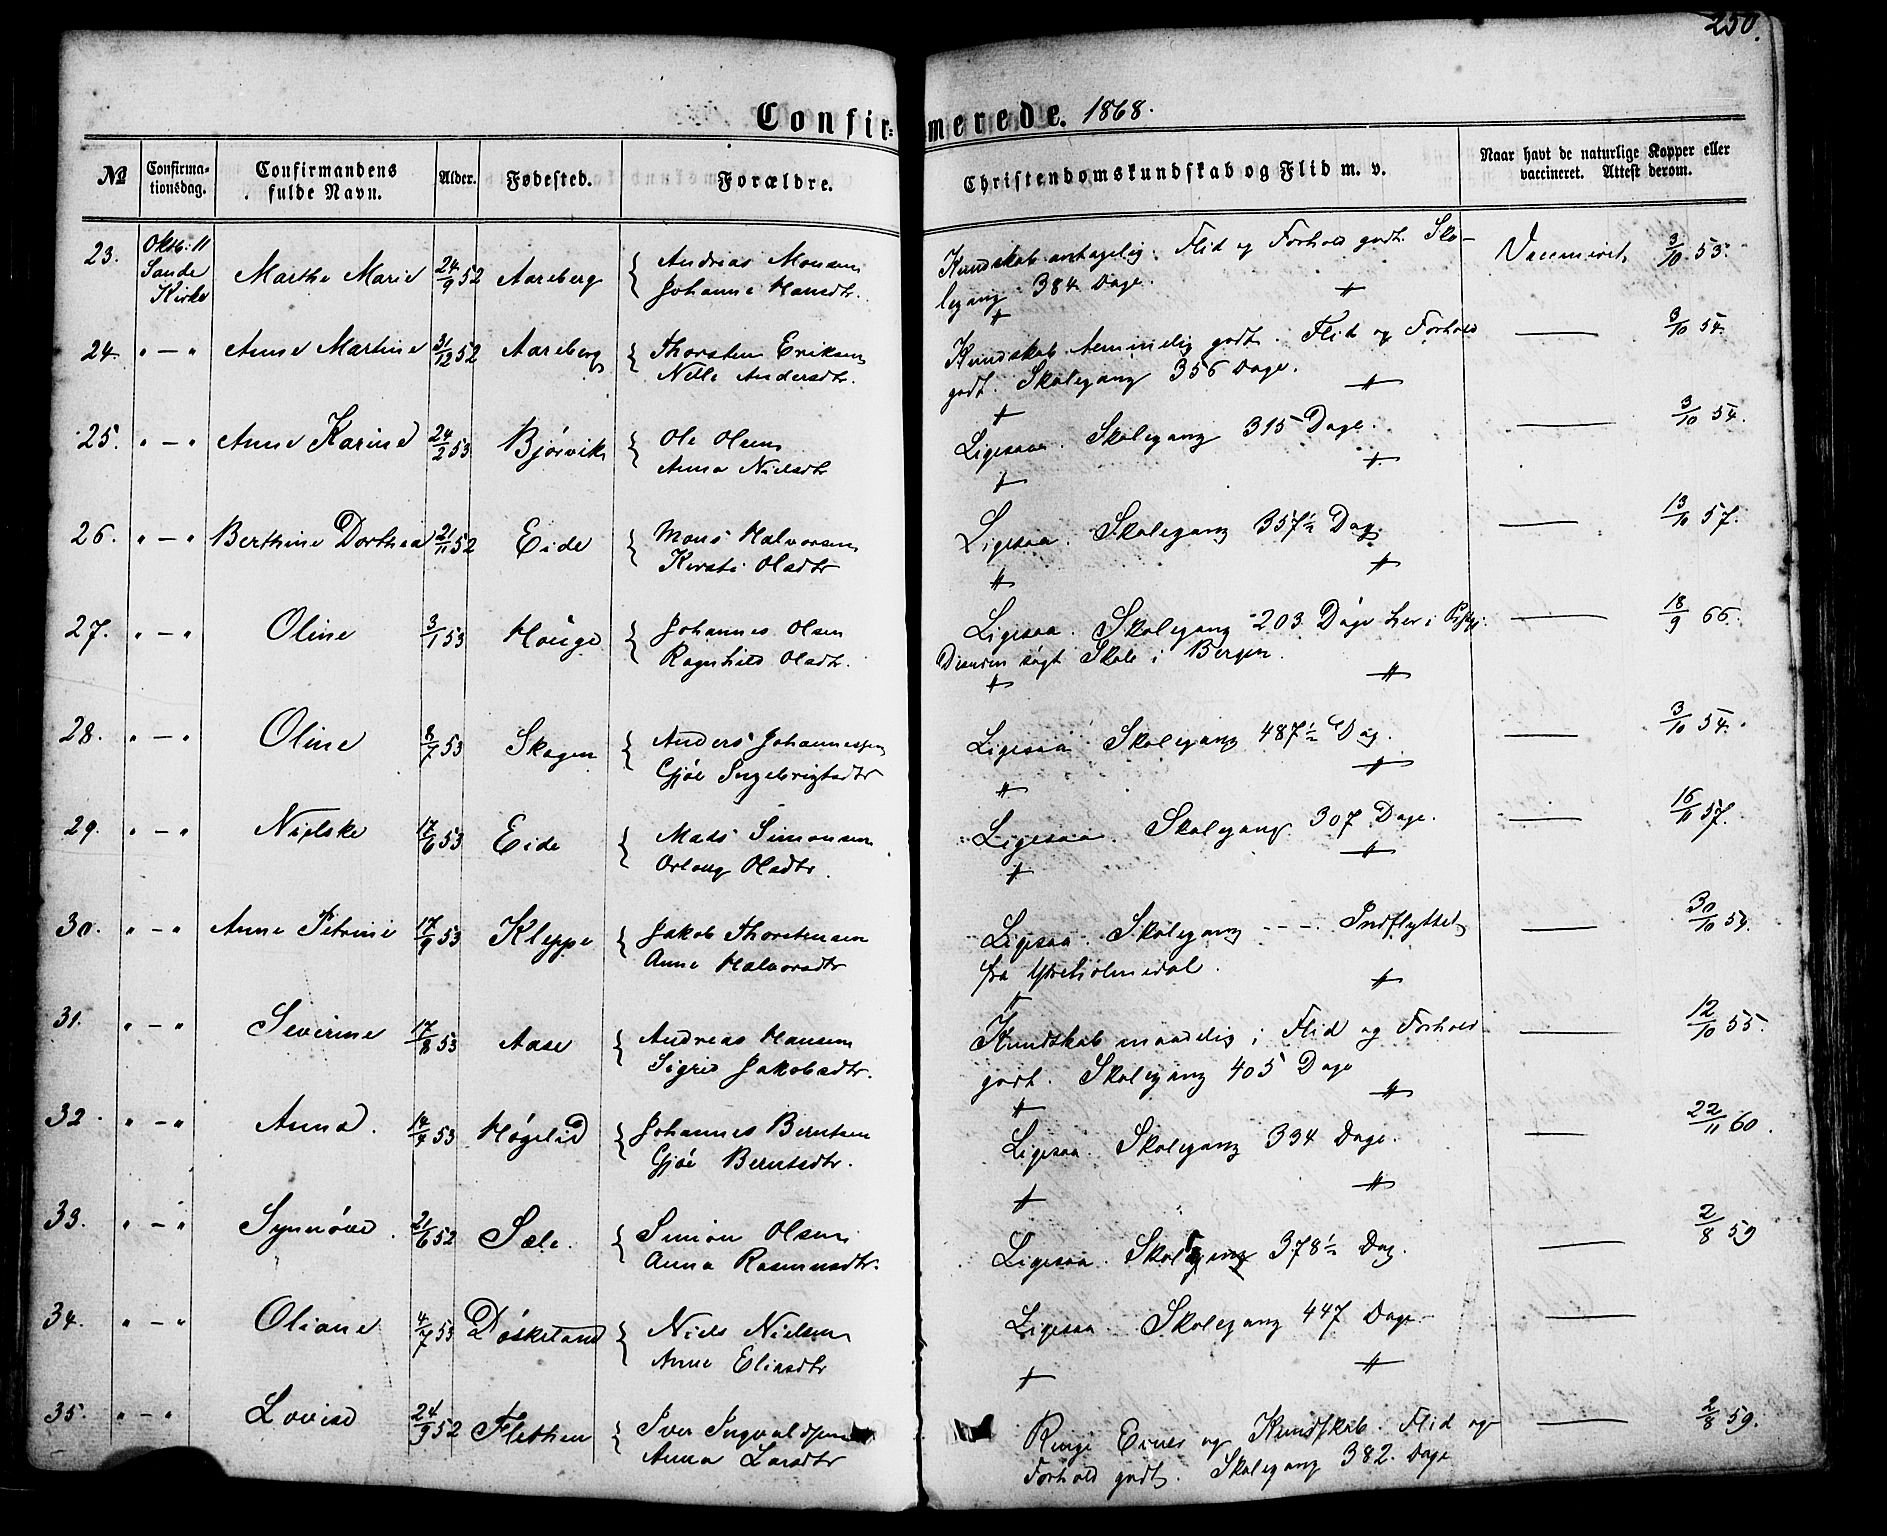 250.
Confirmerede. 1868.
№ Confirmationsdag. Confirmandens fulde Navn. Alder. Fødested. Forældre. Christendomskundskab og Flid m. v. Naar havt de naturlige Kopper eller vaccineret. Attest derom.
23. Oktb: 11 Sande Kirke Marthe Marie 24/9 52 Aareberg { Andreas Monsen Johanne Hansdtr. Kundskab antagelig. Flid og Forhold godt. Skolegang 384 Dage. Vaccineret, 3/10 53.
24. " — " Anne Martine 31/12 52 Aareberg { Thorsten Eriksen Nille Andersdtr. Kundskab temmelig godt. Flid og Forhold godt. Skolegang 356 Dage. — 3/10 54.
25. " — " Anne Karine 24/2 53 Bjørvik { Ole Olsen Anna Nielsdtr Ligesaa. Skolegang 315 Dage. — 3/10 54.
26. " — " Berthine Dorthea 21/11 52 Eide { Mons Halvorsen Kersti Olsdtr Ligesaa. Skolegang 357½ Dag. — 13/10 57.
27. " — " Oline 3/1 53 Houge { Johannes Olsen Ragnhild Olsdtr. Ligesaa. Skolegang 203 Dage her i Desuden søgt Skole i Bergen. — 18/9 66.
28. " — " Oline 8/7 53 Skogen { Anders Johannessen Gjøe Ingebrigtsdtr Ligesaa. Skolegang 487½ Dag. — 3/10 54.
29. " — " Nielske 17/6 53 Eide { Mads Simonsen Orloug Olsdtr. Ligesaa. Skolegang 307 Dage. — 16/11 57.
30. " — " Anne Petrine 17/9 53 Kleppe { Jakob Thorstensen Anne Halvorsdtr Ligesaa. Skolegang - - - . Indflyttet fra Ytreholmedal. — 30/10 54.
31. " — " Severine 17/8 53 Aase { Andreas Hansen Sigrid Jakobsdtr. Kundskab maadelig; Flid og Forhold godt. Skolegang 405 Dage — 12/10 55.
32. " — " Anna. 14/4 53 Høgelid { Johannes Berntsen Gjøe Berntsdtr. Ligesaa. Skolegang 334 Dage. — 22/11 60.
33. " — " Synnøve. 21/6 52 Sæle. { Simon Olsen Anna Rasmusdtr. Ligesaa. Skolegang 378½ Dag. — 2/8 59
34. " — " Oliane 4/7 53 Døskeland { Niels Nielsen Anne Eliasdtr Ligesaa. Skolegang 447 Dage — 
35. " — " Lovise 24/9 52 Flethen { Iver Ingvaldsen Anna Larsdtr Ringe Evner og Kundskab. Flid og Forhold godt. Skolegang 382. Dage — 2/8 59.